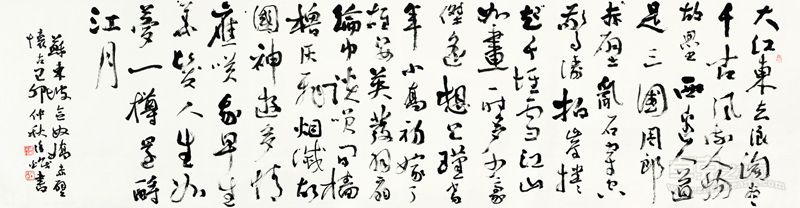 大江東去浪淘盡
千古風流人物
故壘西邊人道
是三國周郎
赤壁亂石穿空
驚濤拍岸捲
起千堆雪江山
如畫一時多少豪
傑遙想公瑾當
年小喬初嫁了
雄姿英發羽扇
綸巾談笑間檣
櫓灰飛烟滅故
國神遊多情
應笑我早生
華髮人生如
夢一樽還酹
江月
蘇東坡念奴嬌赤壁
懷古己卯仲秋書